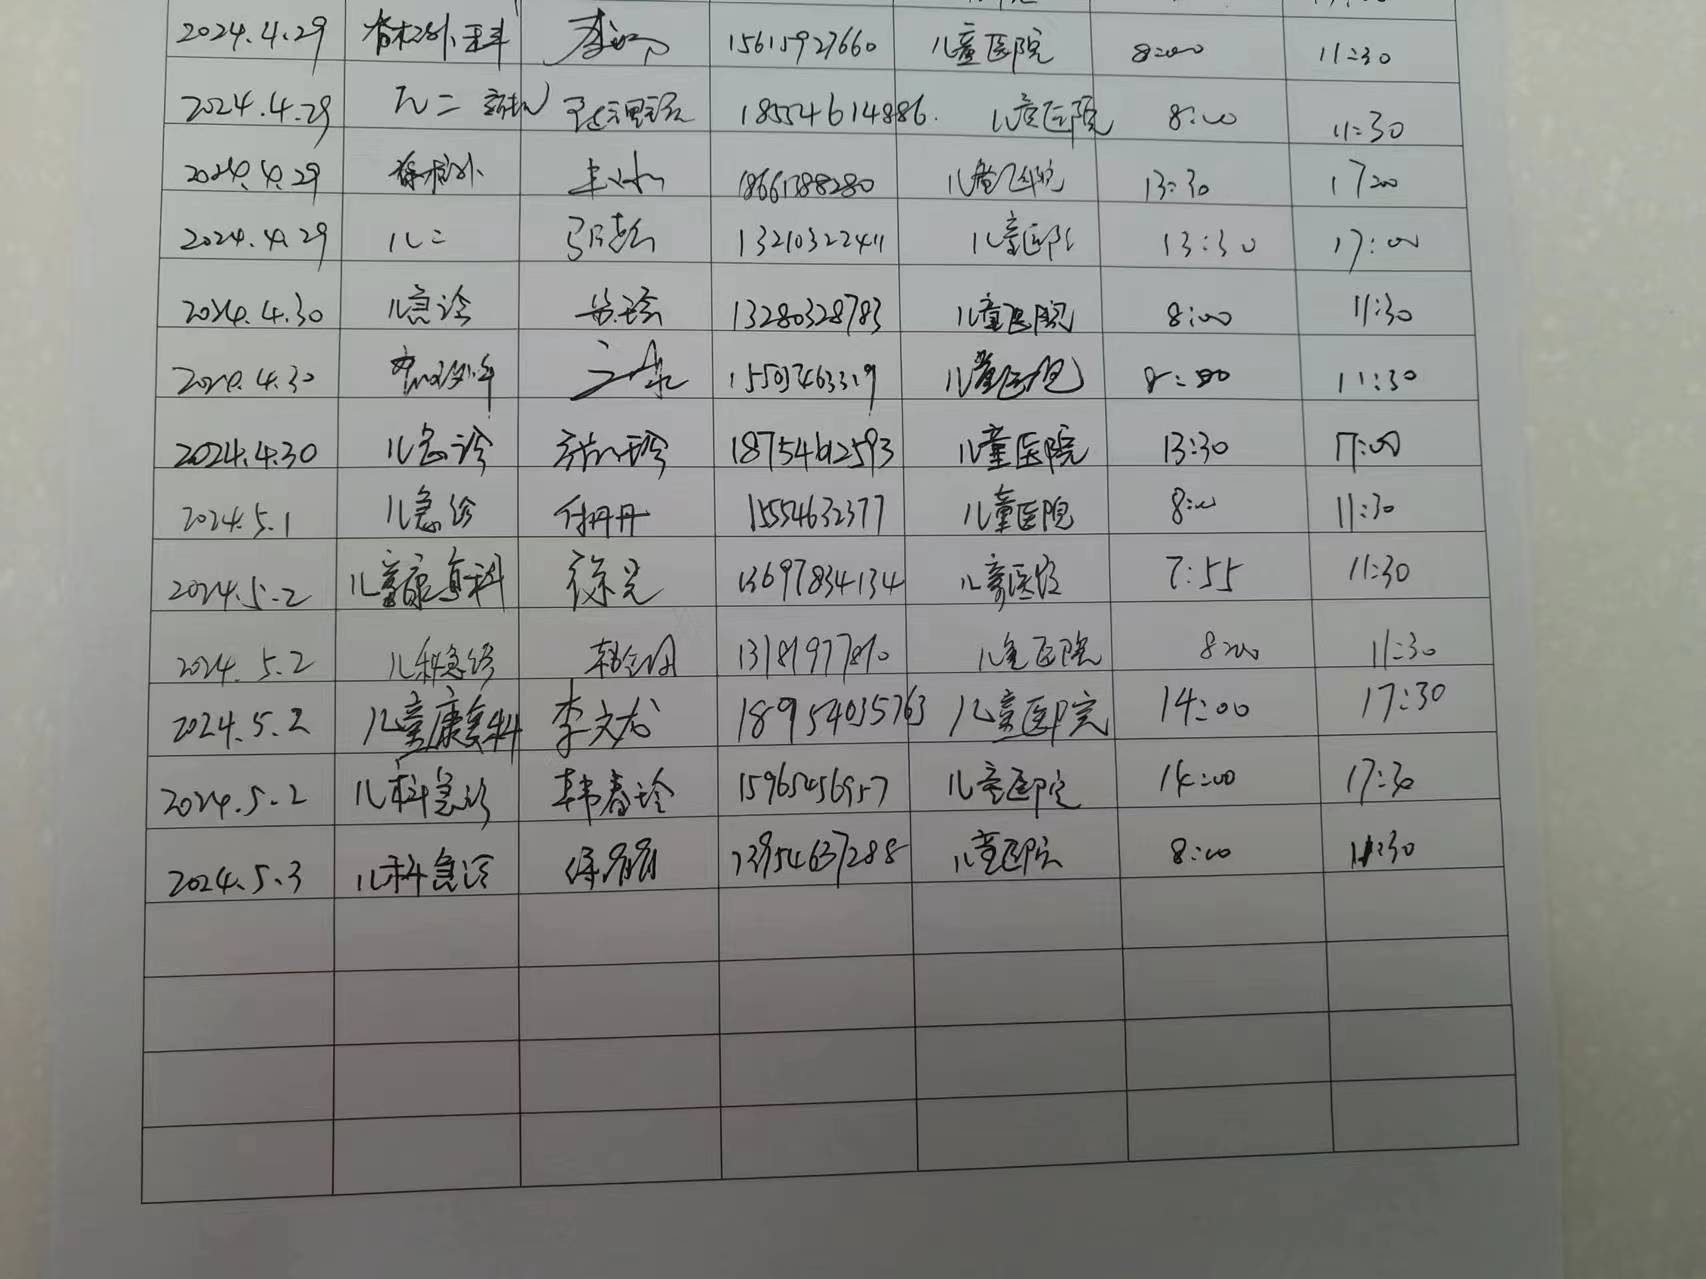 2024.4.29 脊柱外科 15615927660 儿童医院 8:00 11:30
2024.4.29 儿二 18554614886. 儿童医院 8:00 11:30
2024.4.29 脊柱外 18661388280 儿童医院 13:30 17:00
2024.4.29 儿二 13210322411 儿童医院 13:30 17:00
2024.4.30 儿急诊 13280328783 儿童医院 8:00 11:30
2024.4.30 儿童医院 8:00 11:30
2024.4.30 儿急诊 18754612593 儿童医院 13:30 17:00
2024.5.1 儿急诊 付丹丹 15554632377 儿童医院 8:00 11:30
2024.5.2 儿童康复科 徐昊 13697834134 儿童医院 7:55 11:30
2024.5.2 儿科急诊 儿童医院 8:00 11:30
2024.5.2 儿童康复科 李文龙 18954035763 儿童医院 14:00 17:30
2024.5.2 儿科急诊 韩春玲 15965456957 儿童医院 14:00 17:30
2024.5.3 儿科急诊 13954637288 儿童医院 8:00 11:30